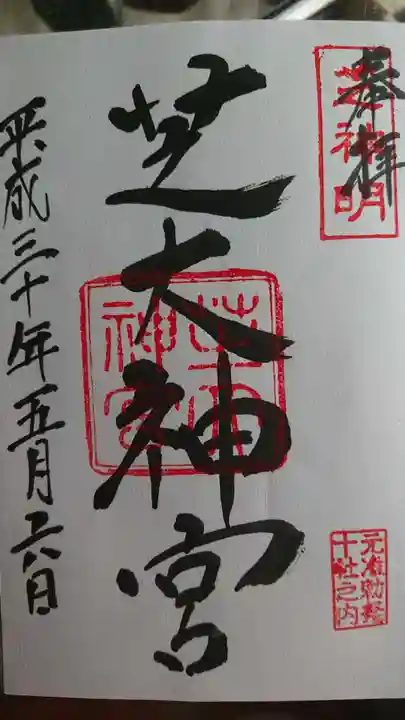 奉拝
芝神明
元准勅祭
十社之内
芝大神宮
芝大神宮
平成三十年五月二六日